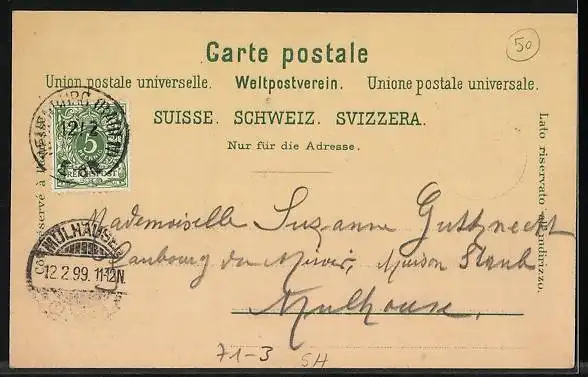 50
Carte postale
Union postale universelle. Weltpostverein. Unione postale universale.
SUISSE. SCHWEIZ. SVIZZERA.
Nur für die Adresse.
Côté réservé à
Lato riservato all'indirizzo.
12/2
5
PFENNIG
REICHSPOST
MÜLHAUSEN
12.2.99. 11-12N.
Mademoiselle Suzanne Gutknecht
Faubourg du Miroir, Maison Staub
Mulhouse.
71-3 SH